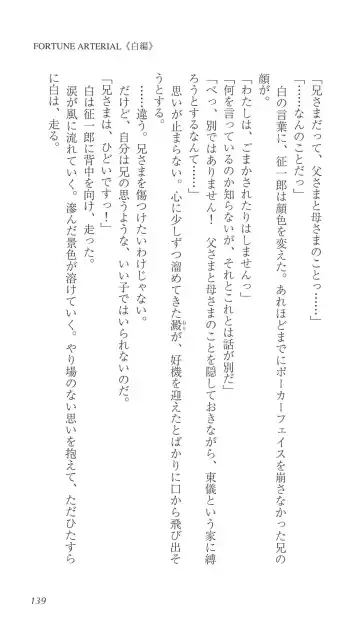 FORTUNE ARTERIAL《白編》
「兄さまだって、父さまと母さまのことっ……」
「……なんのことだっ」
白の言葉に、征一郎は顔色を変えた。あれほどまでにポーカーフェイスを崩さなかった兄の
顔が。
「わたしは、ごまかされたりはしませんっ」
「何を言っているのか知らないが、それとこれとは話が別だ」
「べっ、別ではありません！　父さまと母さまのことを隠しておきながら、東儀という家に縛
ろうとするなんて……」
思いが止まらない。心に少しずつ溜めてきた澱が、好機を迎えたとばかりに口から飛び出そ
うとする。
……違う。兄さまを傷つけたいわけじゃない。
だけど、自分は兄の思うような、いい子ではいられないのだ。
「兄さまは、ひどいですっ！」
白は征一郎に背中を向け、走った。
涙が風に流れていく。滲んだ景色が溶けていく。やり場のない思いを抱えて、ただひたすら
に白は、走る。
139